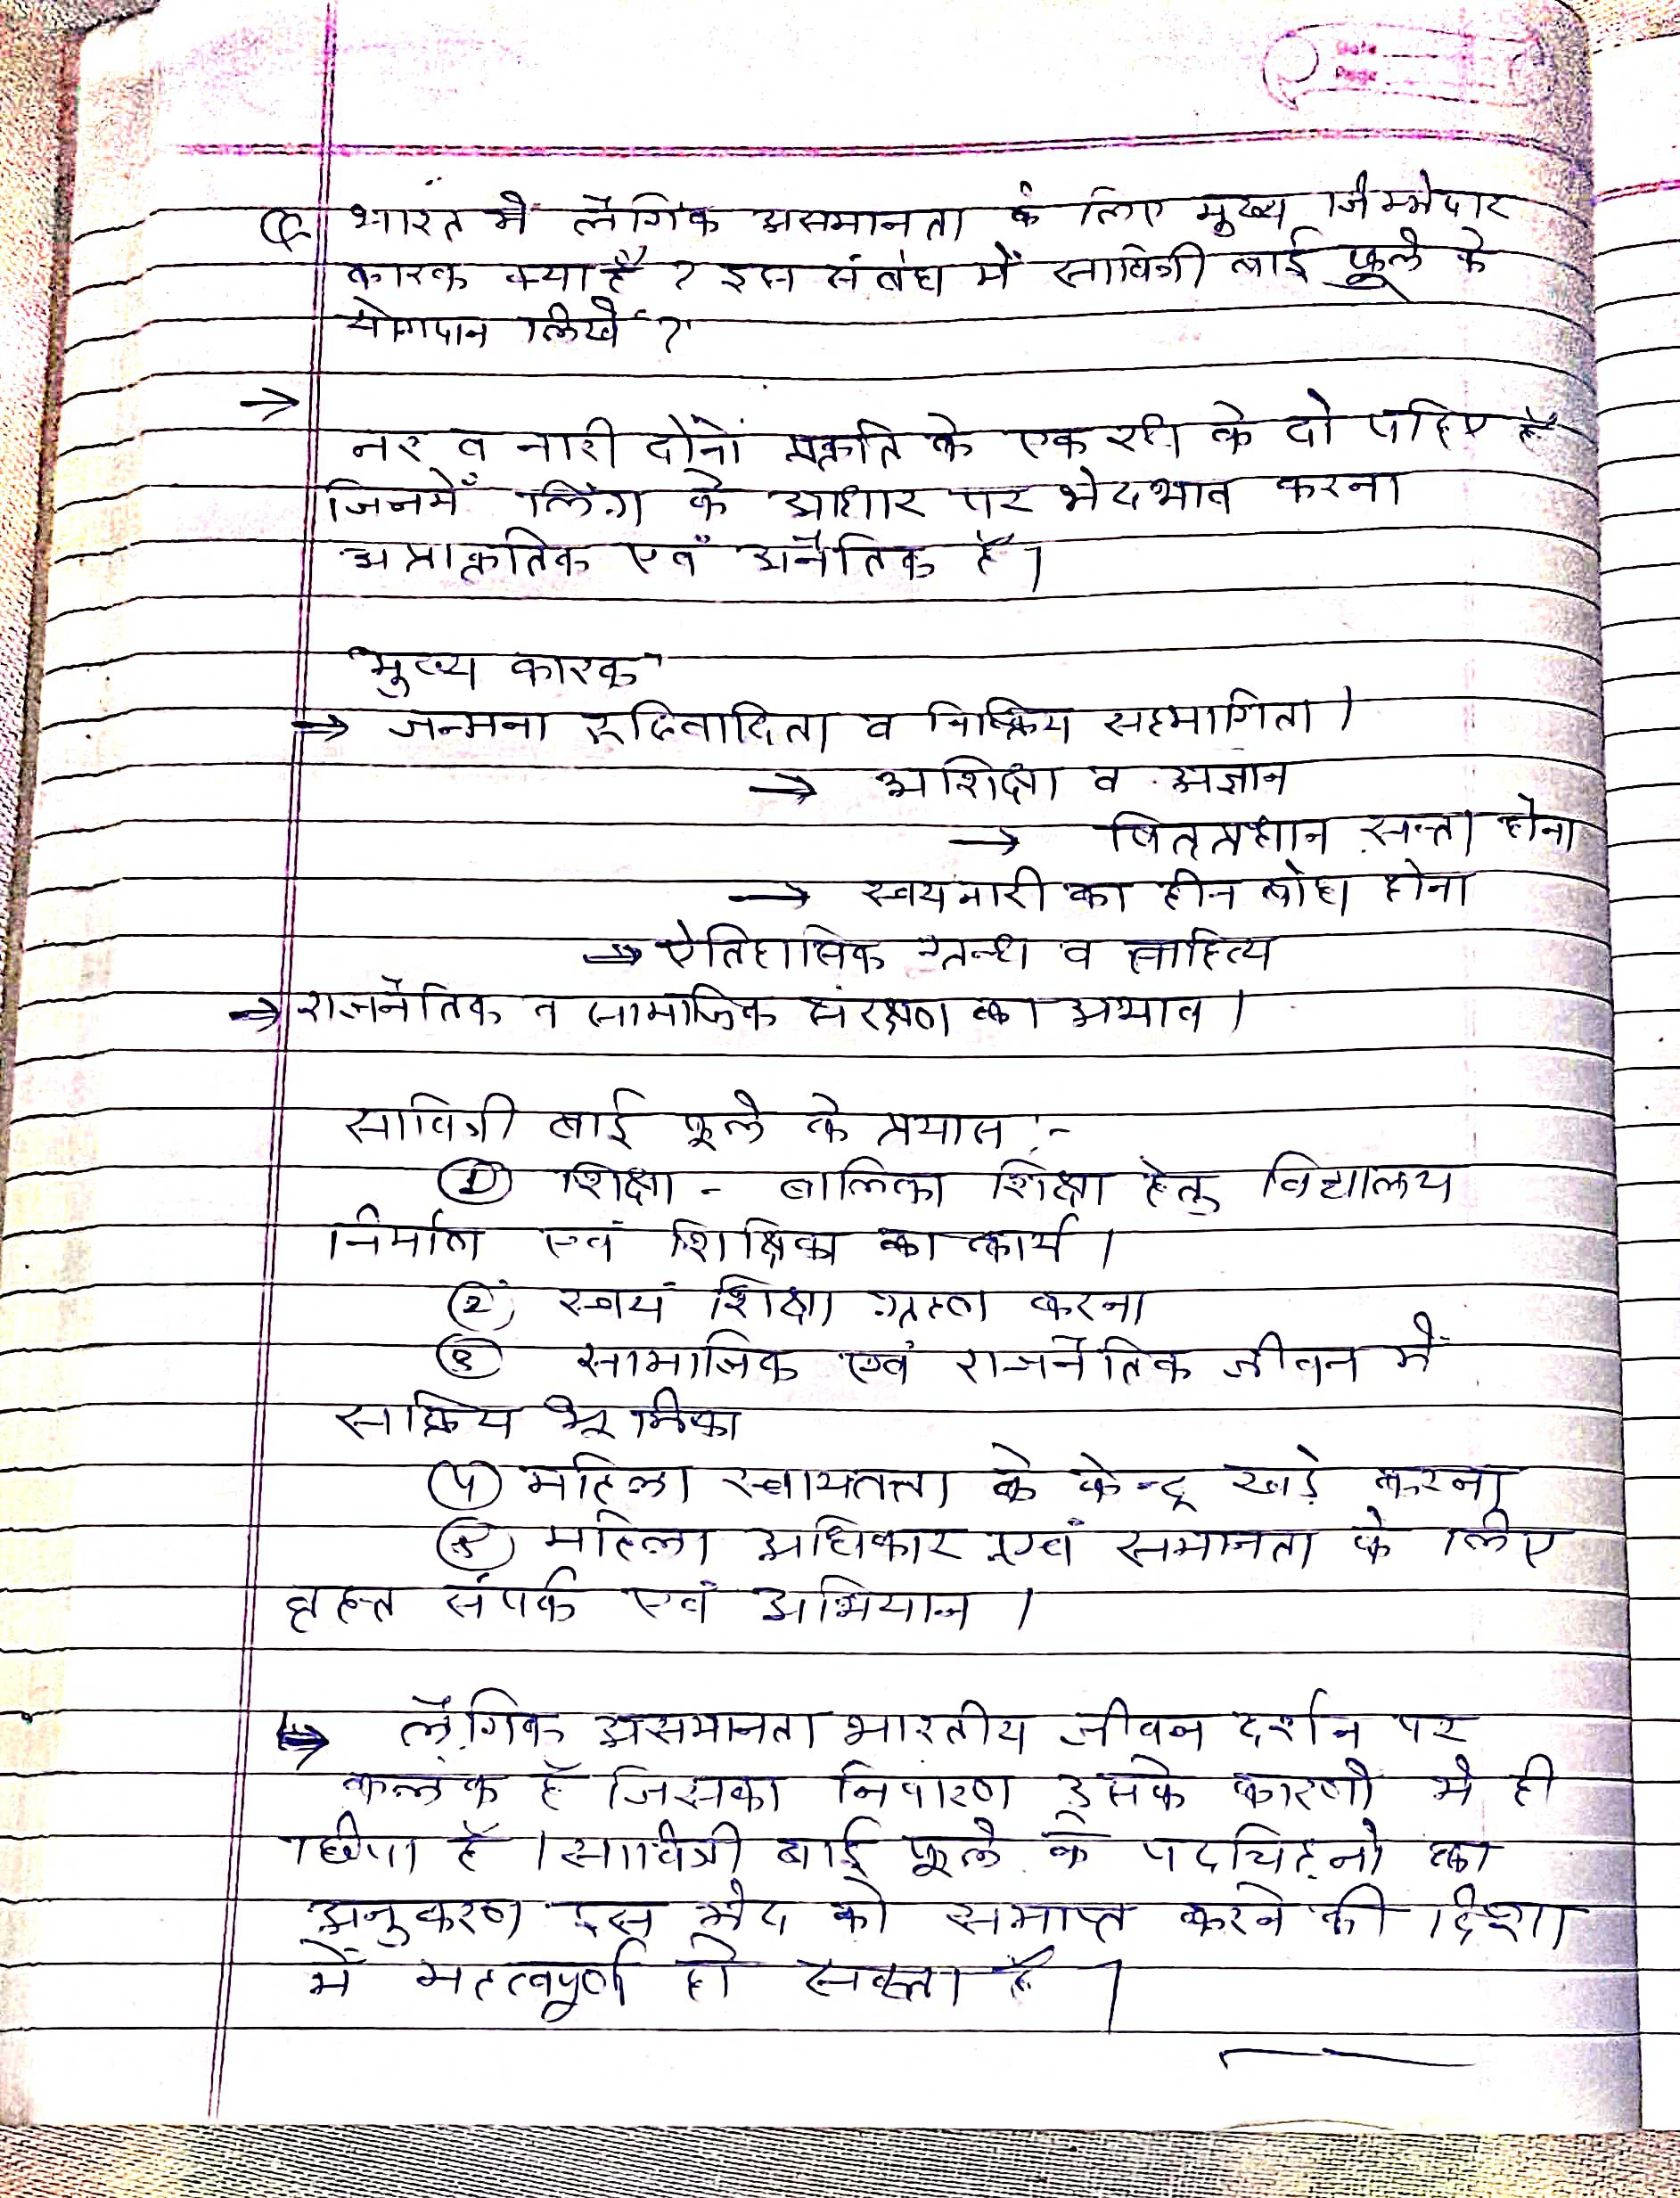 Date
Page
Q. भारत में लैंगिक असमानता के लिए मुख्य जिम्मेदार
कारक क्या है ? इस संबंध में सावित्री बाई फूले के
योगदान लिखें ?
→
नर व नारी दोनों प्रकृति के एक रथ के दो पहिए हैं
जिनमें लिंग के आधार पर भेदभाव करना
अप्राकृतिक एवं अनैतिक है।
"मुख्य कारक"
→ जन्मना रूढिवादिता व निष्क्रिय सहभागिता।
→ अशिक्षा व अज्ञान
→ पितृप्रधान सत्ता होना
→ स्वयं नारी का हीन बोध होना
→ ऐतिहासिक ग्रन्थ व साहित्य
→ राजनैतिक व सामाजिक संरक्षण का अभाव।
सावित्री बाई फूले के प्रयास :-
① शिक्षा - बालिका शिक्षा हेतु विद्यालय
निर्माण एवं शिक्षिका का कार्य।
② स्वयं शिक्षा ग्रहण करना
③ सामाजिक एवं राजनैतिक जीवन में
सक्रिय भूमिका
④ महिला स्वायतत्ता के केन्द्र खड़े करना
⑤ महिला अधिकार एवं समानता के लिए
वृहत्त संपर्क एवं अभियान।
→ लैंगिक असमानता भारतीय जीवन दर्शन पर
कलंक है जिसका निवारण उसके कारणो मे ही
छिपा है। सावित्री बाई फूले के पदचिह्नो का
अनुकरण इस भेद को समाप्त करने की दिशा
में महत्वपूर्ण हो सकता है।